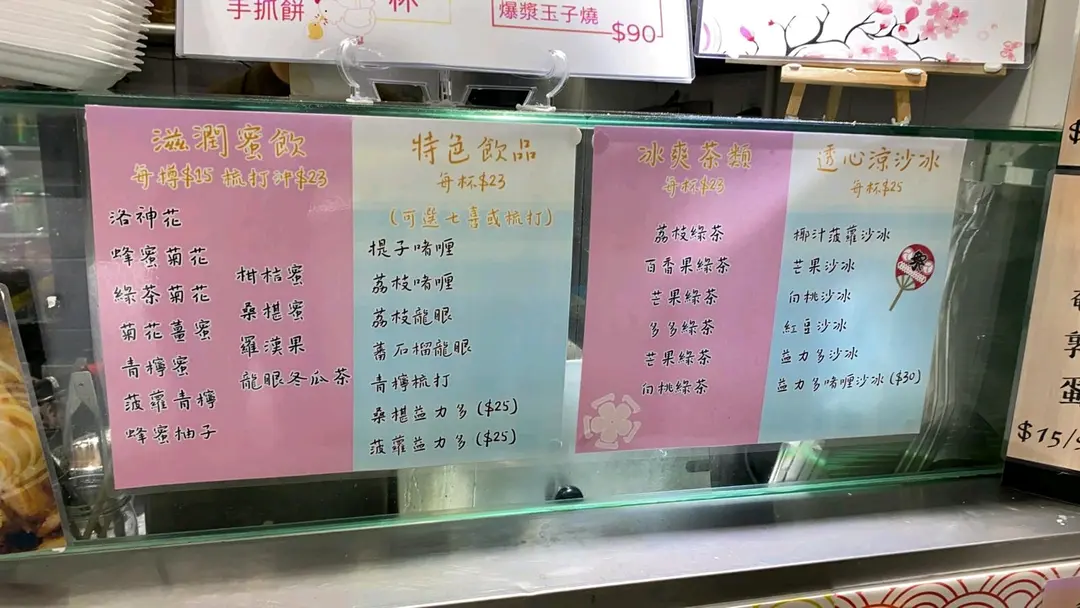 手抓餅
杯
爆漿玉子燒
$90
滋潤蜜飲
每樽$15 梳打沖$23
洛神花
蜂蜜菊花
綠茶菊花
菊花薑蜜
青檸蜜
菠蘿青檸
蜂蜜柚子
柑桔蜜
桑椹蜜
羅漢果
龍眼冬瓜茶
特色飲品
每杯$23
(可選七喜或梳打)
提子啫喱
荔枝啫喱
荔枝龍眼
蕃石榴龍眼
青檸梳打
桑椹益力多($25)
菠蘿益力多($25)
冰爽茶類
每杯$23
荔枝綠茶
百香果綠茶
芒果綠茶
多多綠茶
芒果綠茶
白桃綠茶
透心涼沙冰
每杯$25
椰汁菠蘿沙冰
芒果沙冰
白桃沙冰
紅豆沙冰
益力多沙冰
益力多啫喱沙冰($30)
祭
蛋
$15/